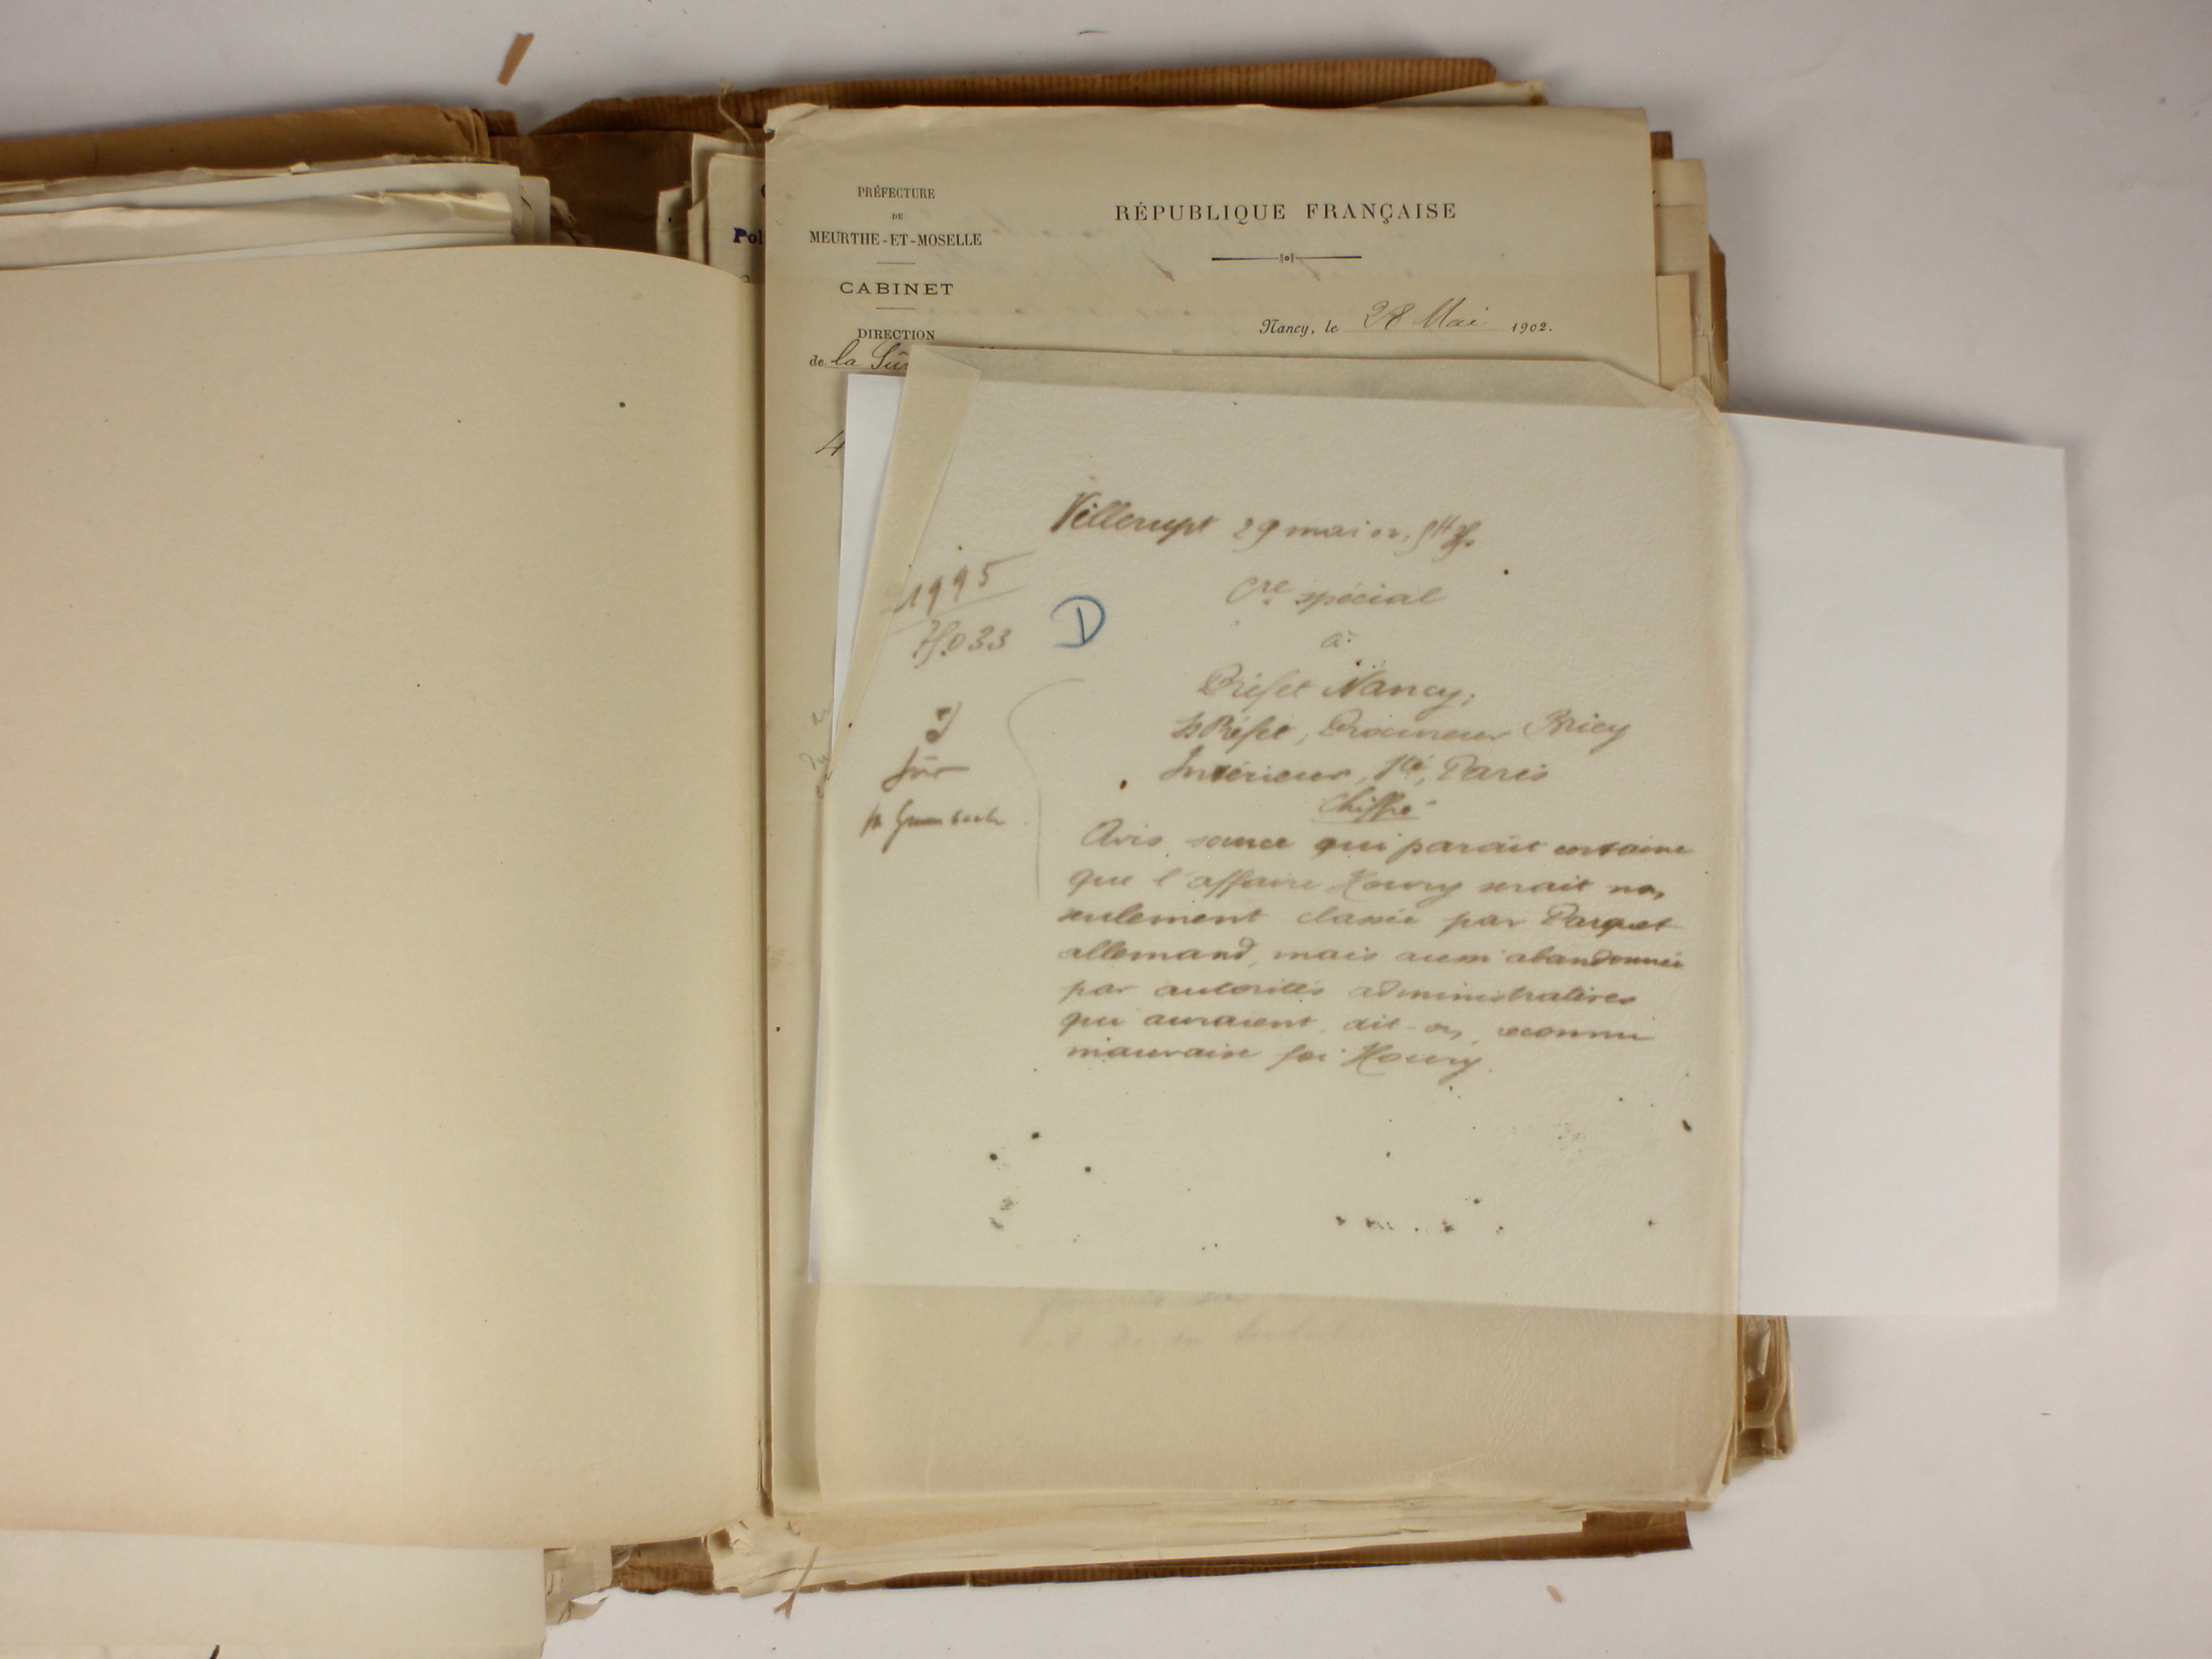 PRÉFECTURE
DE
MEURTHE-ET-MOSELLE
CABINET
DIRECTION
de la Sû
RÉPUBLIQUE FRANÇAISE
Nancy, le 28 Mai 1902.
Pol
4
Villerupt 29 mai 02,
1995
D
Cre spécial
à
Préfet Nancy,
S Préfet, Procureur Briey
Intérieur, Sté, Paris
Chiffré
Avis source qui paraît certaine
que l'affaire Houry serait non
seulement classée par Parquet
allemand, mais aussi abandonnée
par autorités administratives
qui auraient, dit-on, reconnu
mauvaise foi Houry.